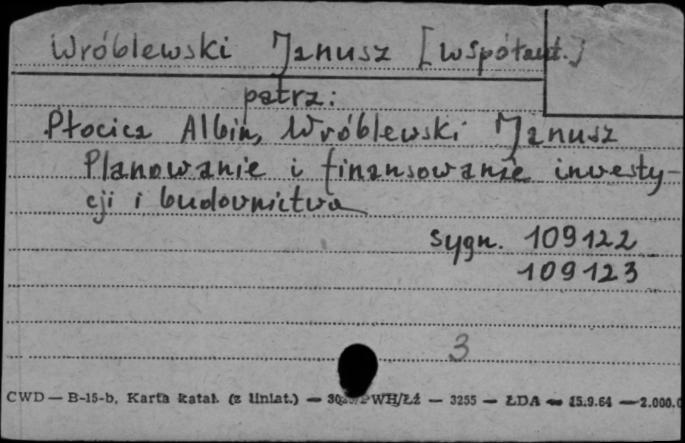 Wróblewski Janusz [współaut.]
patrz:
Płocica Albin, Wróblewski Janusz
Planowanie i finansowanie inwesty-
cji i budownictwa
sygn. 109122
109123
3
CWD — B-15-b. Karta katal. (z liniat.) — PWH/Łź — 3255 — ŁDA — 15.9.64 — 2.000.0